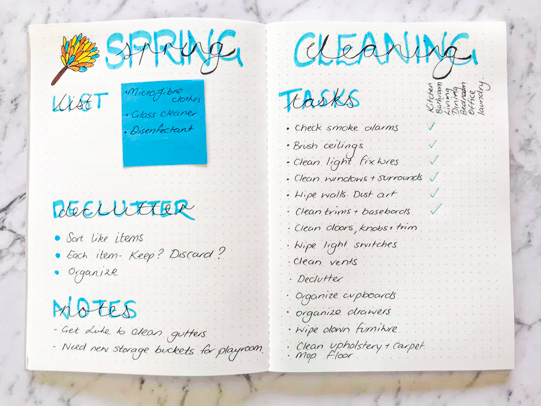 SPRING
spring
LIST
list
• Microfibre
cloths
• Glass cleaner
• Disenfectant
DECLUTTER
declutter
• Sort like items
• Each item - Keep? Discard?
• Organize
NOTES
notes
- Get Luke to clean gutters
- Need new storage buckets for playroom.
CLEANING
cleaning
TASKS
tasks
Kitchen
Bathroom
Living
Dining
Bedroom
Office
laundry
• Check smoke alarms ✓
• Brush ceilings ✓
• Clean light fixtures ✓
• Clean windows + surrounds ✓
• Wipe walls. Dust art ✓
• Clean trims + baseboards ✓
• Clean doors, knobs + trim
• Wipe light switches
• Clean vents
• Declutter
• Organize cupboards
• organize drawers
• Wipe down furniture
• Clean upholstery + carpet
• Mop floor